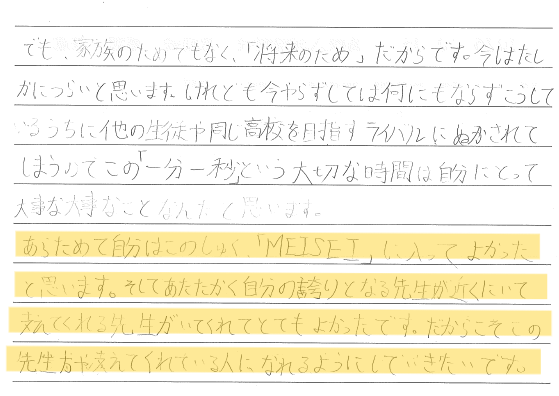 でも、家族のためでもなく、「将来のため」だからです。今はたし
かにつらいと思います。けれども今やらずしては何にもならずこうして
いるうちに他の生徒や同じ高校を目指すライバルにぬかされて
しまうのでこの「一分一秒」という大切な時間は自分にとって
大事な大事なことなんだと思います。
あらためて自分はこのじゅく、「MEISEI」に入ってよかった
と思います。そしてあたたかく自分の誇りとなる先生が近くにいて
支えてくれる先生がいてくれてとてもよかったです。だからこそこの
先生方や支えてくれている人になれるようにしていきたいです。